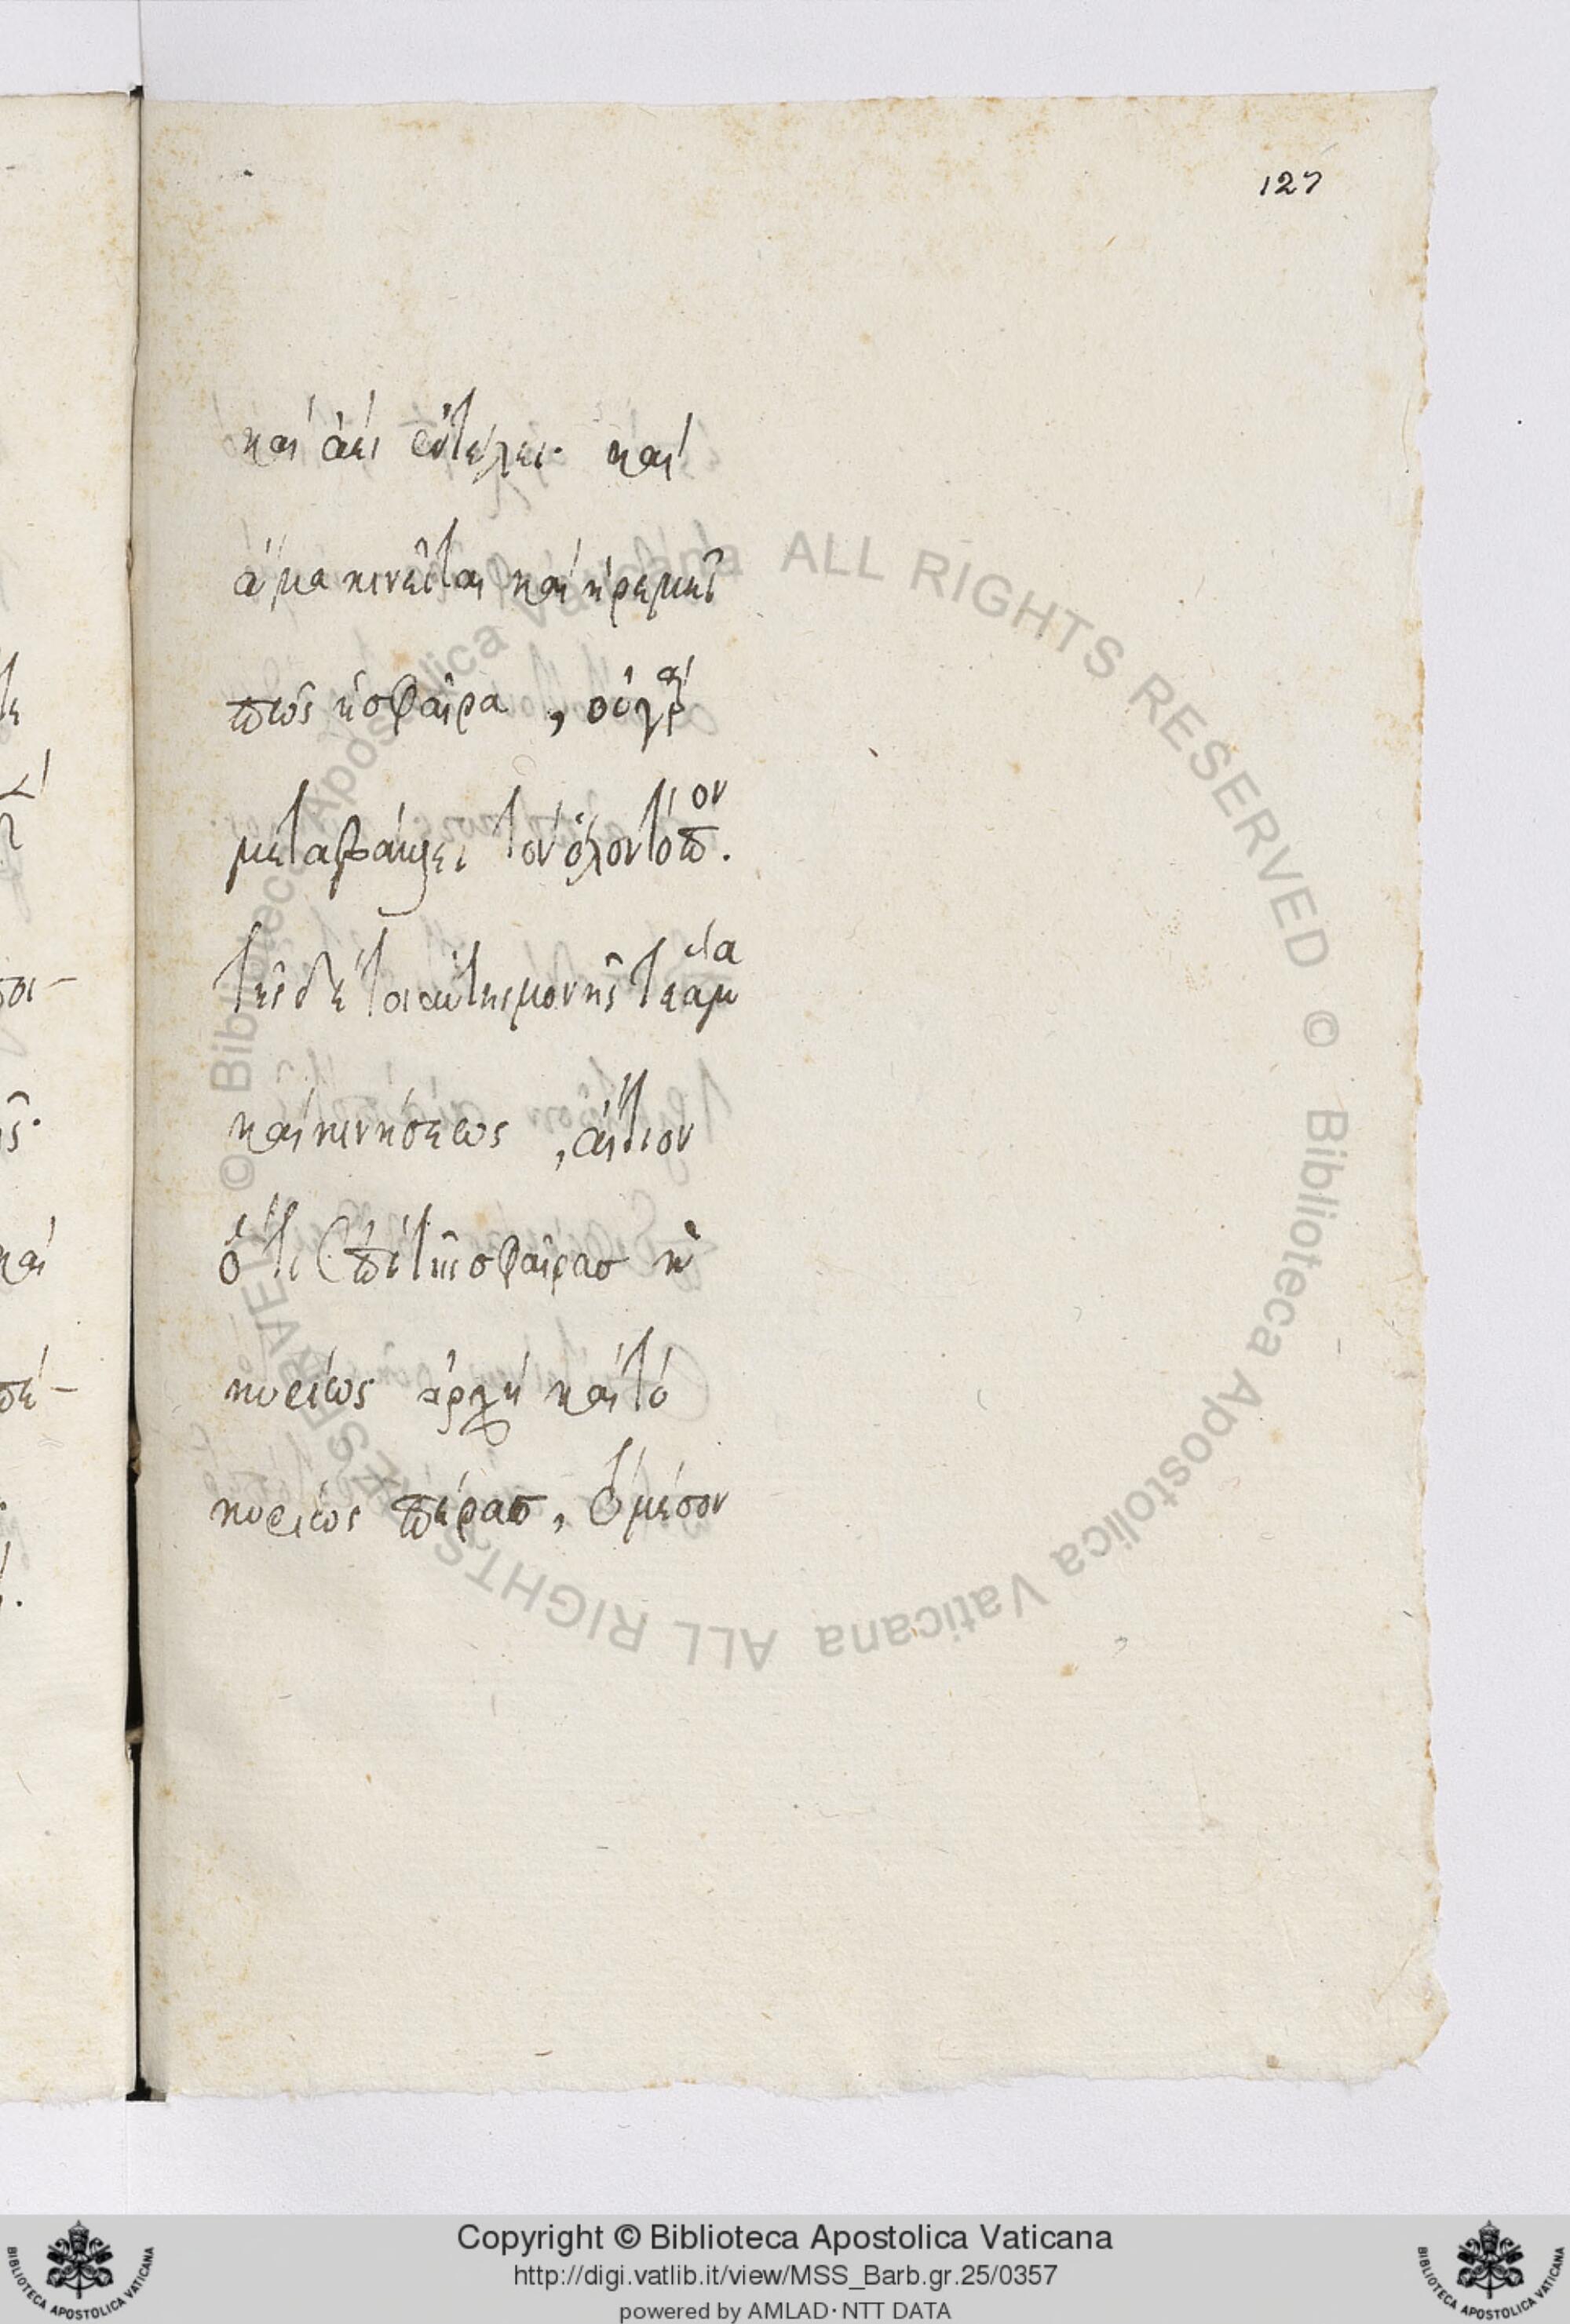 127
καὶ ἀεὶ ἐντελει· καὶ
ἅμα κινεῖται καὶ ἠρεμεῖ
πως ἡ σφαῖρα, οὐ γὰρ
μεταβάλλει τὸν ὅλον τόπον.
τῆς δὲ τοιαύτης μονῆς τε ἅμα
καὶ κινήσεως, αἴτιον
ὅτι ἐπὶ τῆς σφαίρας ἡ
κυρίως ἀρχὴ καὶ τὸ
κυρίως πέρας, τὸ μέσον
© Biblioteca Apostolica Vaticana ALL RIGHTS RESERVED © Biblioteca Apostolica Vaticana ALL RIGHTS RESERVED
Copyright © Biblioteca Apostolica Vaticana
http://digi.vatlib.it/view/MSS_Barb.gr.25/0357
powered by AMLAD·NTT DATA
BIBLIOTECA APOSTOLICA VATICANA
BIBLIOTECA APOSTOLICA VATICANA